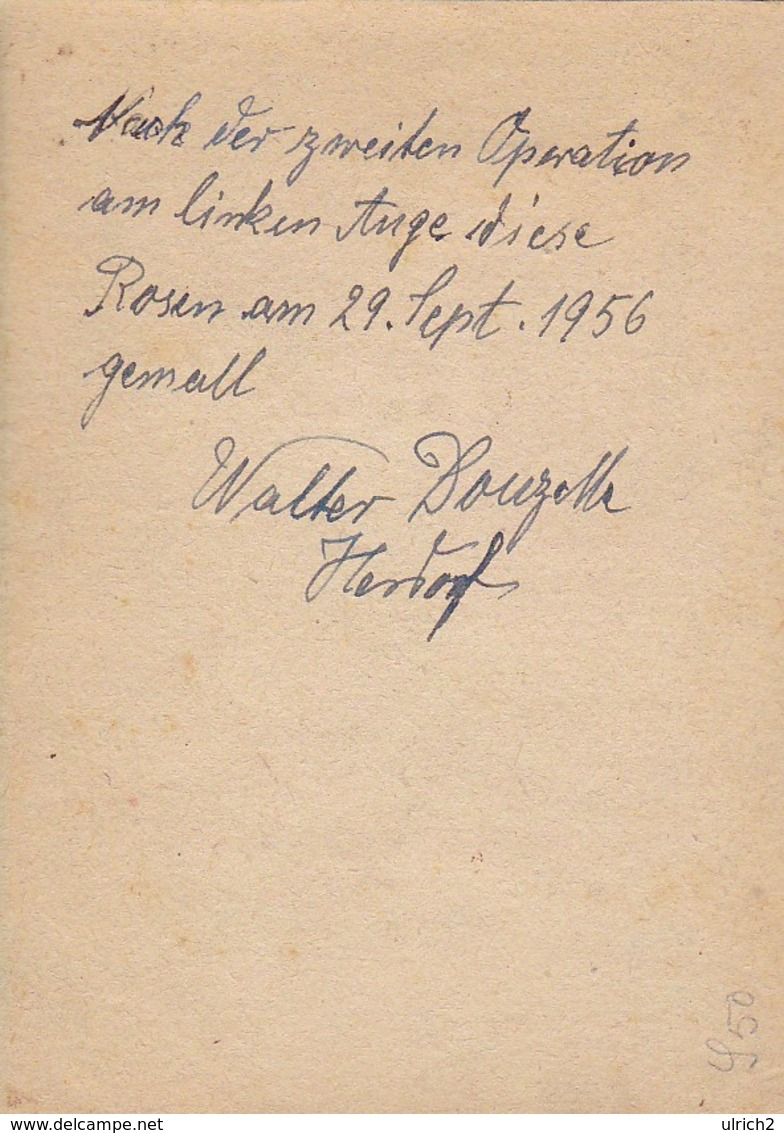 Nach der zweiten Operation
am linken Auge diese
Rosen am 29. Sept. 1956
gemalt
Walter Douzette
Herdorf
950
www.delcampe.net
ulrich2